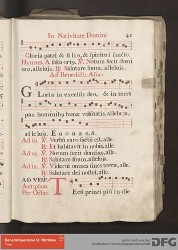 In Nativitate Domini 42
Gloria patri & filio, & spiritui sancto.
Hymnus. A solis ortu. V. Notum fecit domi
nus, alleluja. R. Salutare suum, alleluja.
Ad Benedictus, Aña:
GLoria in excelsis deo, & in terra
pax hominibus bonæ voluntatis, alleluja,
alleluja. Euouae.
Ad iii. V. Verbum caro factum est, alle.
R. Et habitavit in nobis, alle.
Ad vi. V. Notum fecit dominus, alle.
R. Salutare suum, alleluja.
Ad ix. V. Viderunt omnes fines terræ, alle.
R. Salutare dei nostri, alle.
AD VESP.
Antiphon.
Per Octav.
TEcum principium in die
DFG